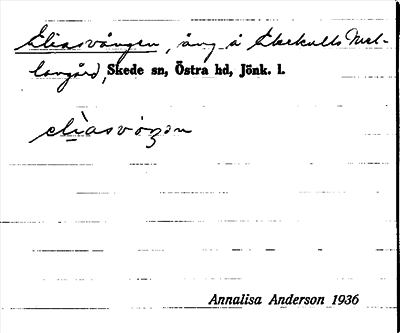 Eliasvången, äng å Ekekulls Mel-
langård, Skede sn, Östra hd, Jönk. l.
elìasvoŋən
Annalisa Anderson 1936